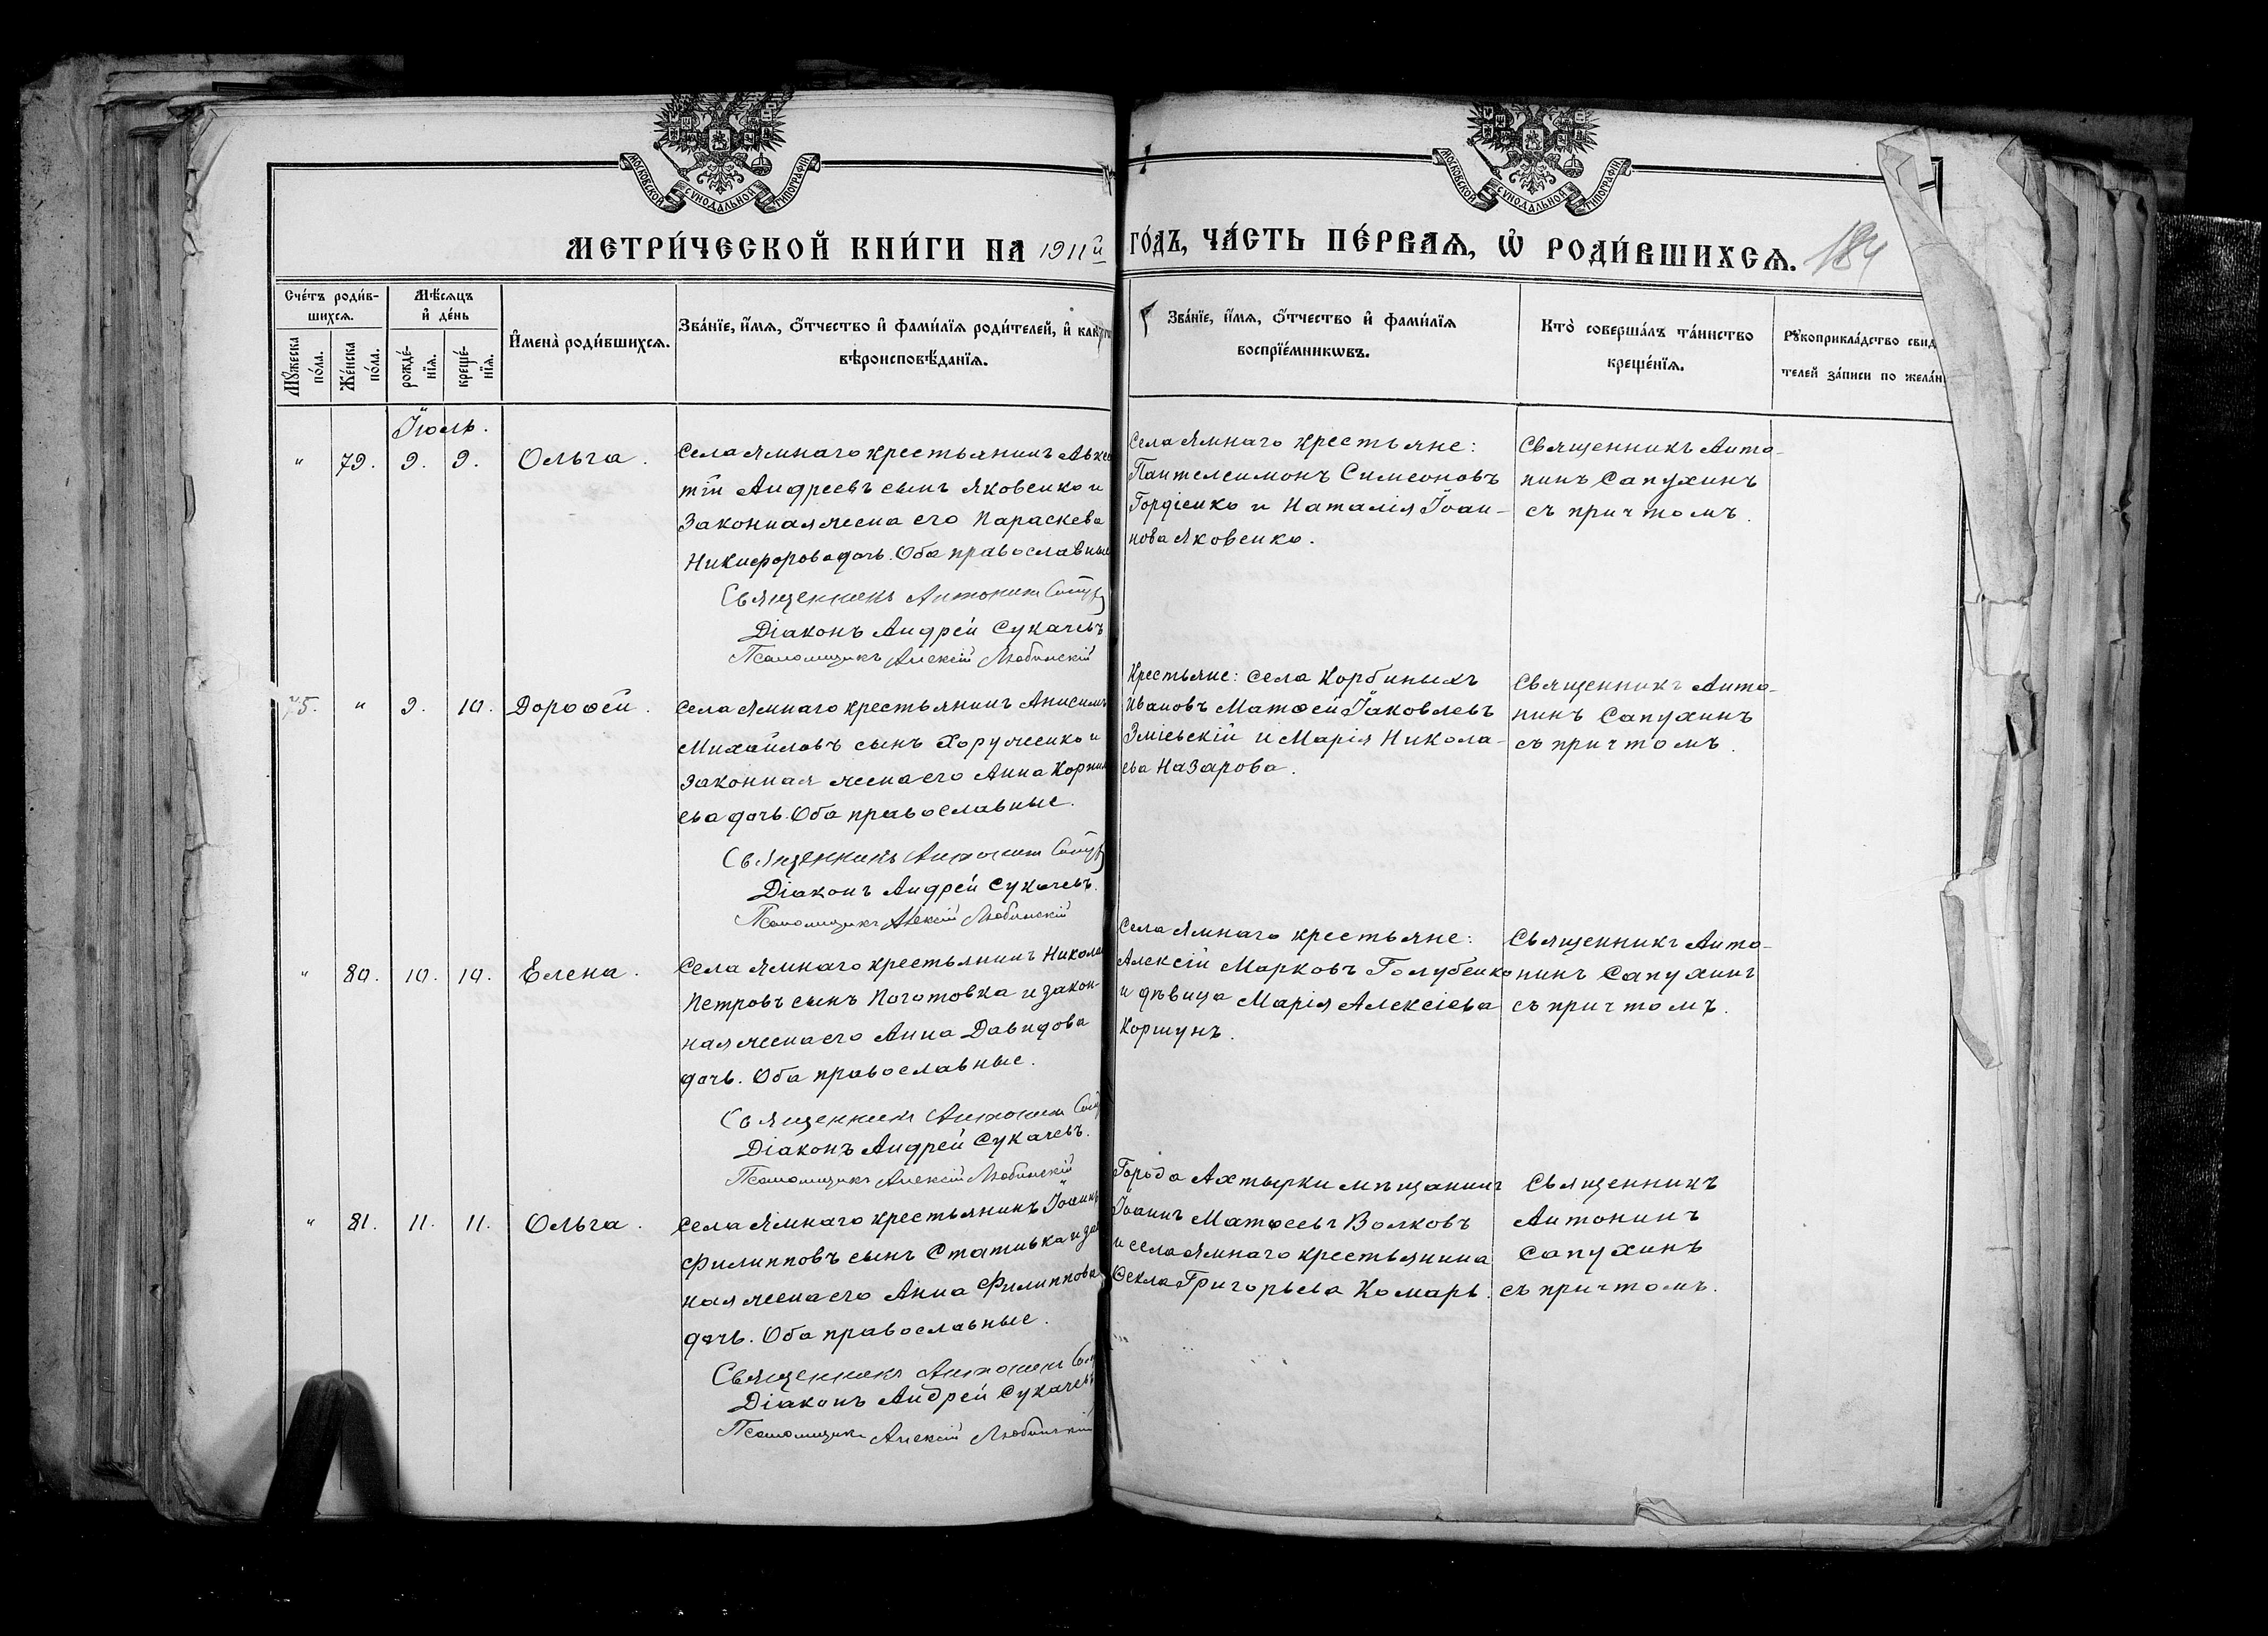 МОСКОВСКОЙ СУНОДАЛЬНОЙ ТИПОГРАФІИ
МОСКОВСКОЙ СУНОДАЛЬНОЙ ТИПОГРАФІИ
МЕТРИ́ЧЕСКОЙ КНИ́ГИ НА 1911й
ГО́ДЪ, ЧА́СТЬ ПЕ́РВАѦ, Ѡ҆ РОДИ́ВШИХСѦ.
184
Сче́тъ роди́в-
шихсѧ.
Мѣ́сѧцъ
и҆ де́нь
Мꙋ́жеска
по́ла.
Же́нска
по́ла.
рожде́-
нїѧ.
креще́-
нїѧ.
И҆мена̀ роди́вшихсѧ.
Зва́нїе, и҆́мѧ, ѻ҆́тчество и҆ фами́лїѧ роди́телей, и҆
вѣроисповѣ́данїѧ.
Зва́нїе, и҆́мѧ, ѻ҆́тчество и҆ фами́лїѧ
воспрїе́мникѡвъ.
Кто̀ соверша́лъ та́инство
креще́нїѧ.
Рꙋкоприкла́дство свид
телей за́писи по жела́н
Іюль.
" 79. 9. 9. Ольга.
Села Ямнаго крестьянинъ Авксе
тій Андреевъ сынъ Яковенко и
законная жена его Параскева
Никифорова дочь. Оба православные
Священникъ Антонинъ
Діаконъ Андрей Сукачевъ
Псаломщикъ Алексій Любинскій
Села Ямнаго крестьяне:
Пантелеимонъ Симеоновъ
Гордіенко и Наталія Іоан-
нова Яковенко.
Священникъ Анто-
нинъ Сапухинъ
съ причтомъ.
75. " 9. 10. Дороѳей.
Села Ямнаго крестьянинъ Анисимъ
Михайловъ сынъ Хоруженко и
законная жена его Анна Корни
ева дочь. Оба православные.
Священникъ Антонинъ
Діаконъ Андрей Сукачевъ.
Псаломщикъ Алексій Любинскій
Крестьяне: села Корбиныхъ
Ивановъ Матѳей Іаковлевъ
Зміевскій и Марія Никола-
ева Назарова.
Священникъ Анто-
нинъ Сапухинъ
съ причтомъ.
" 80. 10. 10. Елена.
Села Ямнаго крестьянинъ Никола
Петровъ сынъ Поготовка и закон-
ная жена его Анна Давидова
дочь. Оба православные.
Священникъ Антонинъ
Діаконъ Андрей Сукачевъ.
Псаломщикъ Алексій Любинскій
Села Ямнаго крестьяне:
Алексій Марковъ Голубенко
и дѣвица Марія Алексіева
Коршунъ.
Священникъ Анто-
нинъ Сапухинъ
съ причтомъ.
" 81. 11. 11. Ольга.
Села Ямнаго крестьянинъ Іоаннъ
Филипповъ сынъ Стативка и зак
ная жена его Анна Филиппова
дочь. Оба православные.
Священникъ Антонинъ
Діаконъ Андрей Сукачевъ
Псаломщикъ Алексій Любинскій
Города Ахтырки мѣщанинъ
Іоаннъ Матѳеевъ Волковъ
и села Ямнаго крестьянина
Ѳекла Григорьева Комарь.
Священникъ
Антонинъ
Сапухинъ
съ причтомъ.